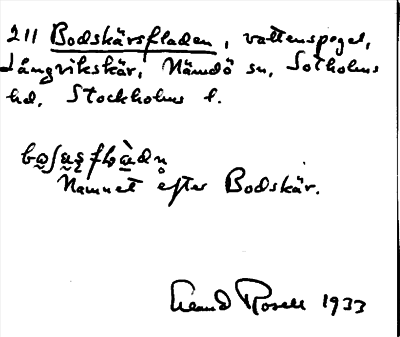 211 Bodskärsfladen, vattenspegel,
Långvikskär, Nämdö sn, Sotholms
hd, Stockholms l.
Namnet efter Bodskär.
Erland Rosell 1933